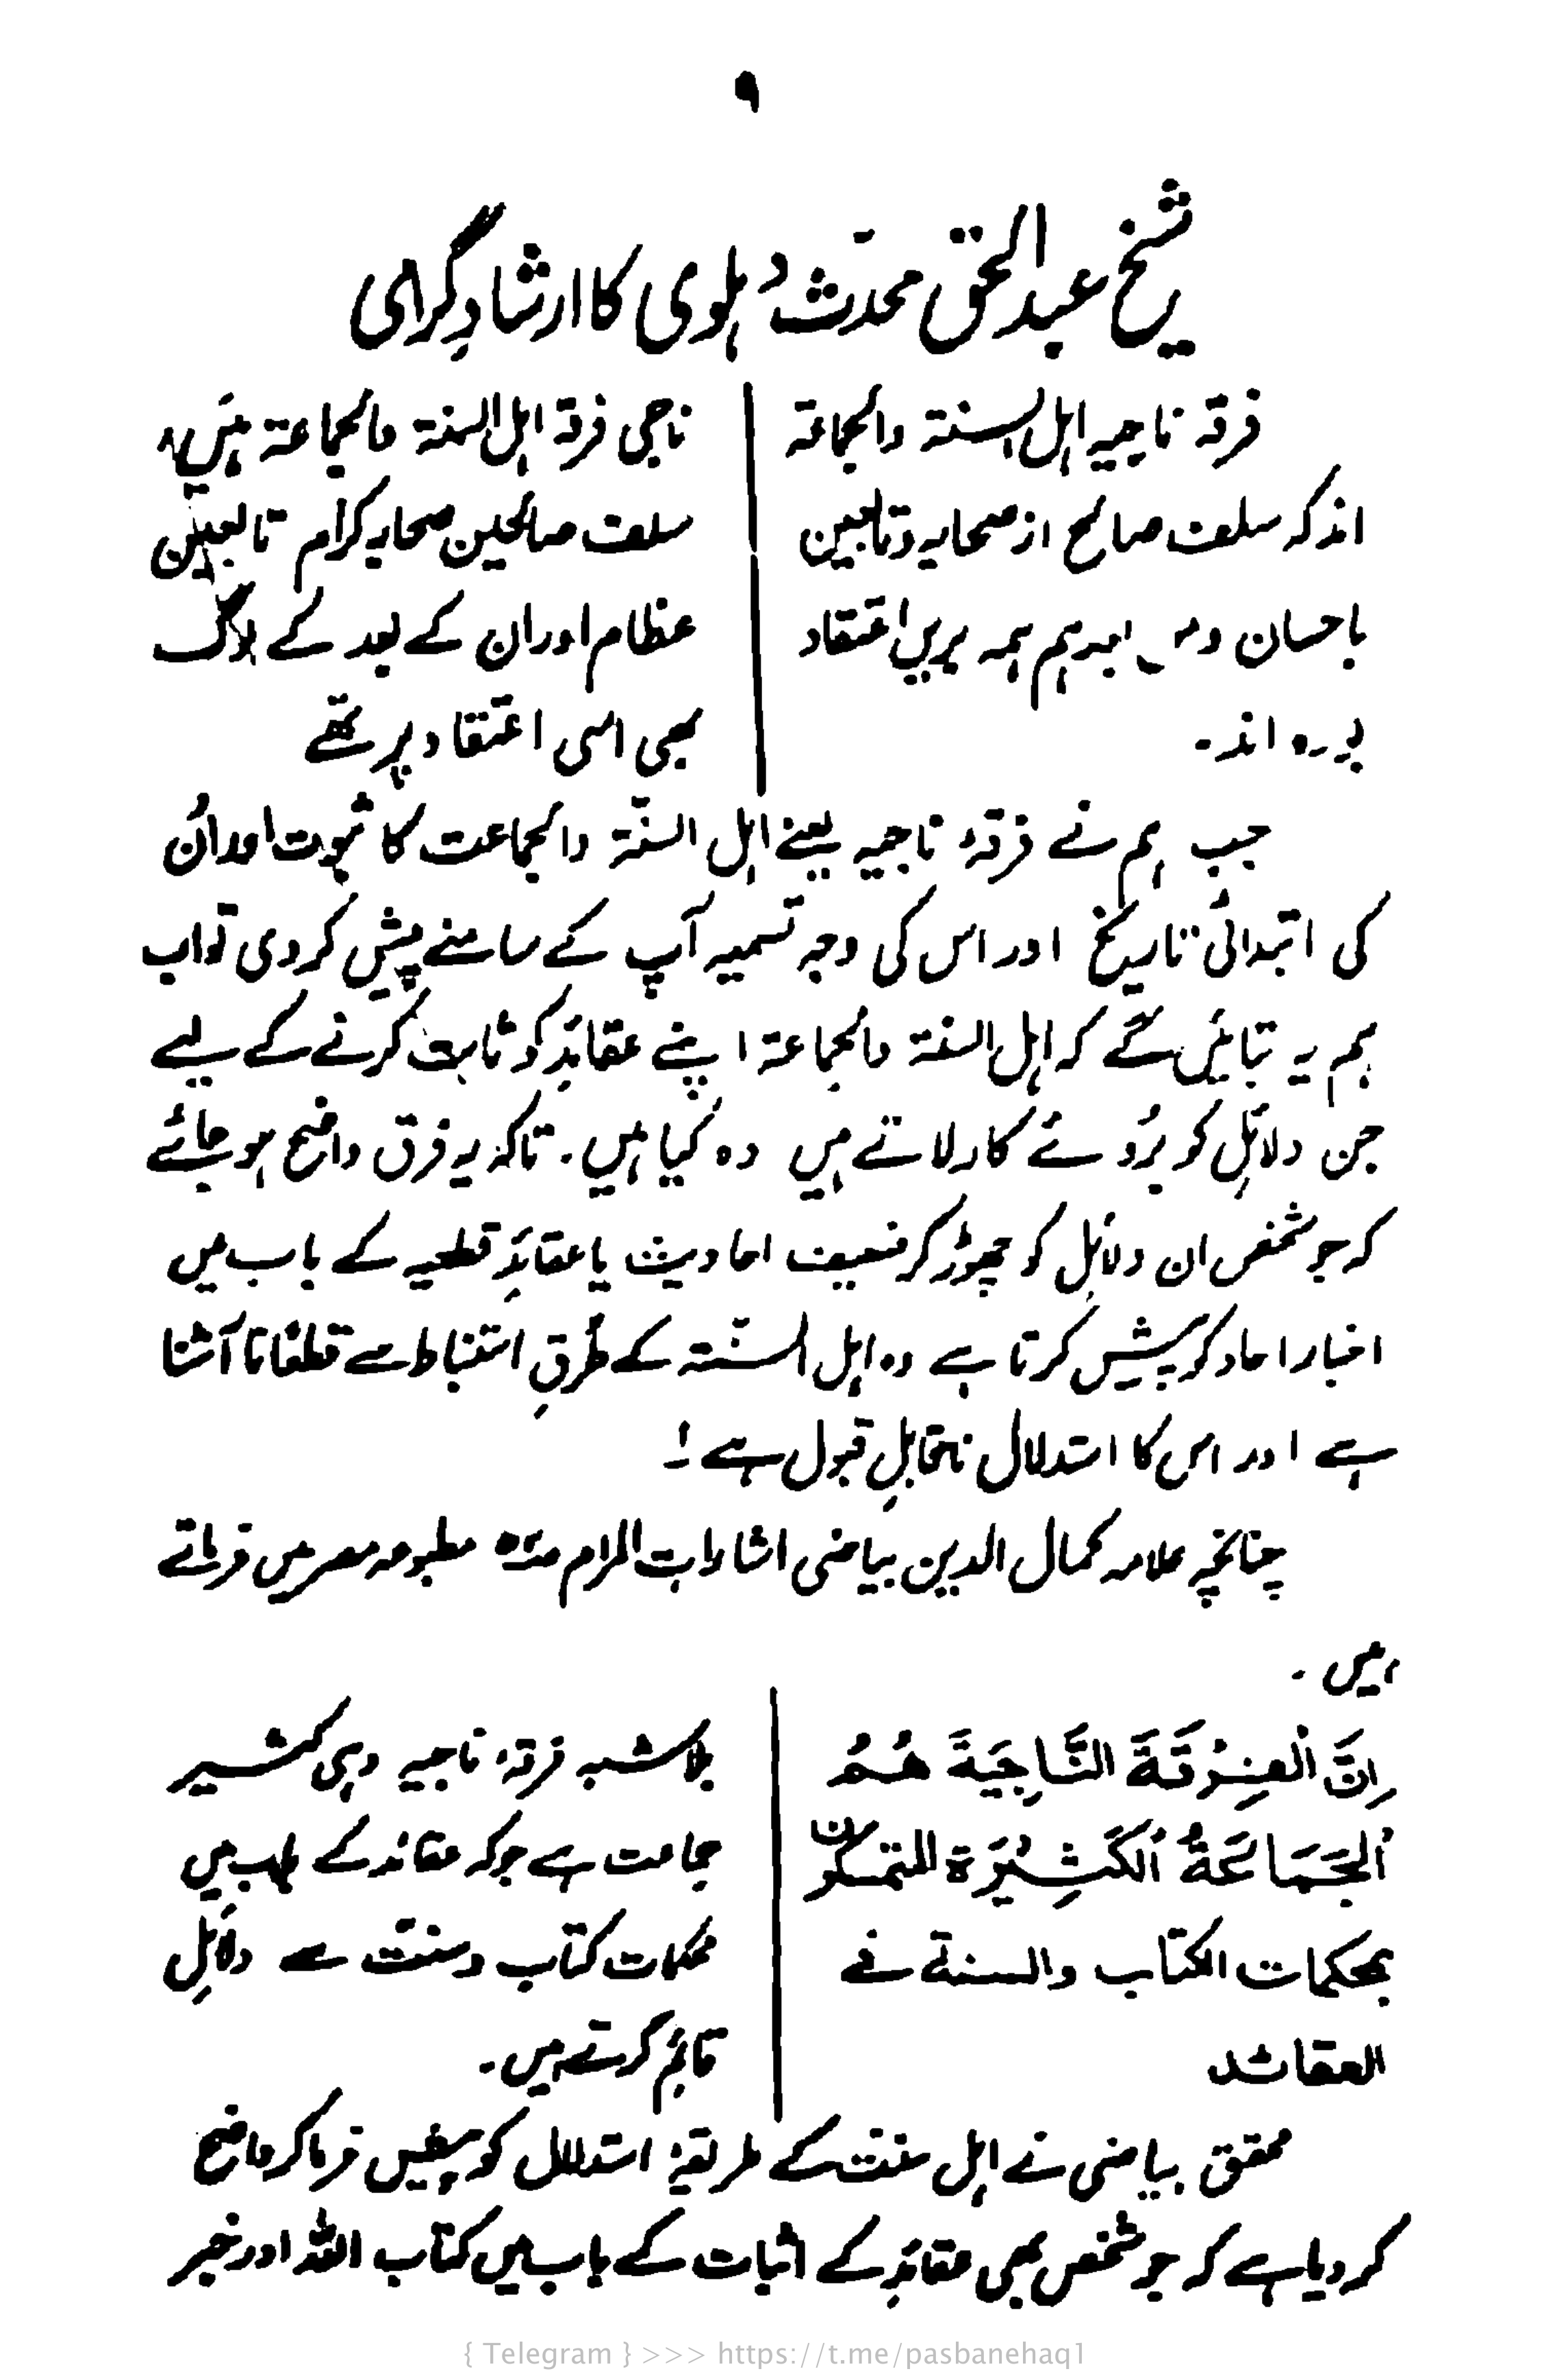 ۹
شیخ عبدالحق محدّث دہلوی کا ارشادِ گرامی
فرقہ ناجیہ اہل السنۃ والجماعۃ
اند کہ سلف صالح از صحابہ و تابعین
باحسان و من بعدہم ہمہ بریں اعتقاد
بودہ اند۔
ناجی فرقۃ اہل السنۃ والجماعۃ ہیں،
سلف صالحین صحابہ کرام تابعین
عظام اور ان کے بعد کے لوگ
بھی اسی اعتقاد پر تھے
جب ہم نے فرقۂ ناجیہ یعنے اہل السنّۃ والجماعت کا ثبوت اور اُن
کی ابتدائی تاریخ اور اس کی وجہ تسمیہ آپ کے سامنے پیش کردی تو اب
ہم یہ بتائیں گے کہ اہل السنۃ والجماعۃ اپنے عقائد کو ثابت کرنے کے لیے
جن دلائل کو بروئے کار لاتے ہیں وہ کیا ہیں۔ تاکہ یہ فرق واضح ہو جائے
کہ جو شخص ان دلائل کو چھوڑ کر ضعیف احادیث یا عقائدِ قطعیہ کے باب میں
اخبار احاد کو پیش کرتا ہے وہ اہل السنّۃ کے طُرقِ استنباط سے قطعًا نا آشنا
ہے اور اس کا استدلال ناقابلِ قبول ہے !
چنانچہ علامہ کمال الدین بیاضی اشارات المرام مطبوعہ مصر میں فرماتے
ہیں ۔
اِنَّ الْفِرْقَةَ النَّاجِيَةَ هُمُ
الْجَمَاعَةُ الْكَثِيْرَة المتمسكون
بمحكمات الكتاب والسنة في
العقائد
بلا شبہ فرقۂ ناجیہ وہی کثیر
جماعت ہے جو کہ عقائد کے باب میں
محکمات کتاب و سنّت سے دلائل
قائم کرتے ہیں۔
محقق بیاضی نے اہل سنت کے طریقۂ استدلال کو پیش فرما کر واضح
کر دیا ہے کہ جو شخص بھی عقائد کے اثبات کے باب میں کتاب اللہ اور خبر
{ Telegram } >>> https://t.me/pasbanehaq1